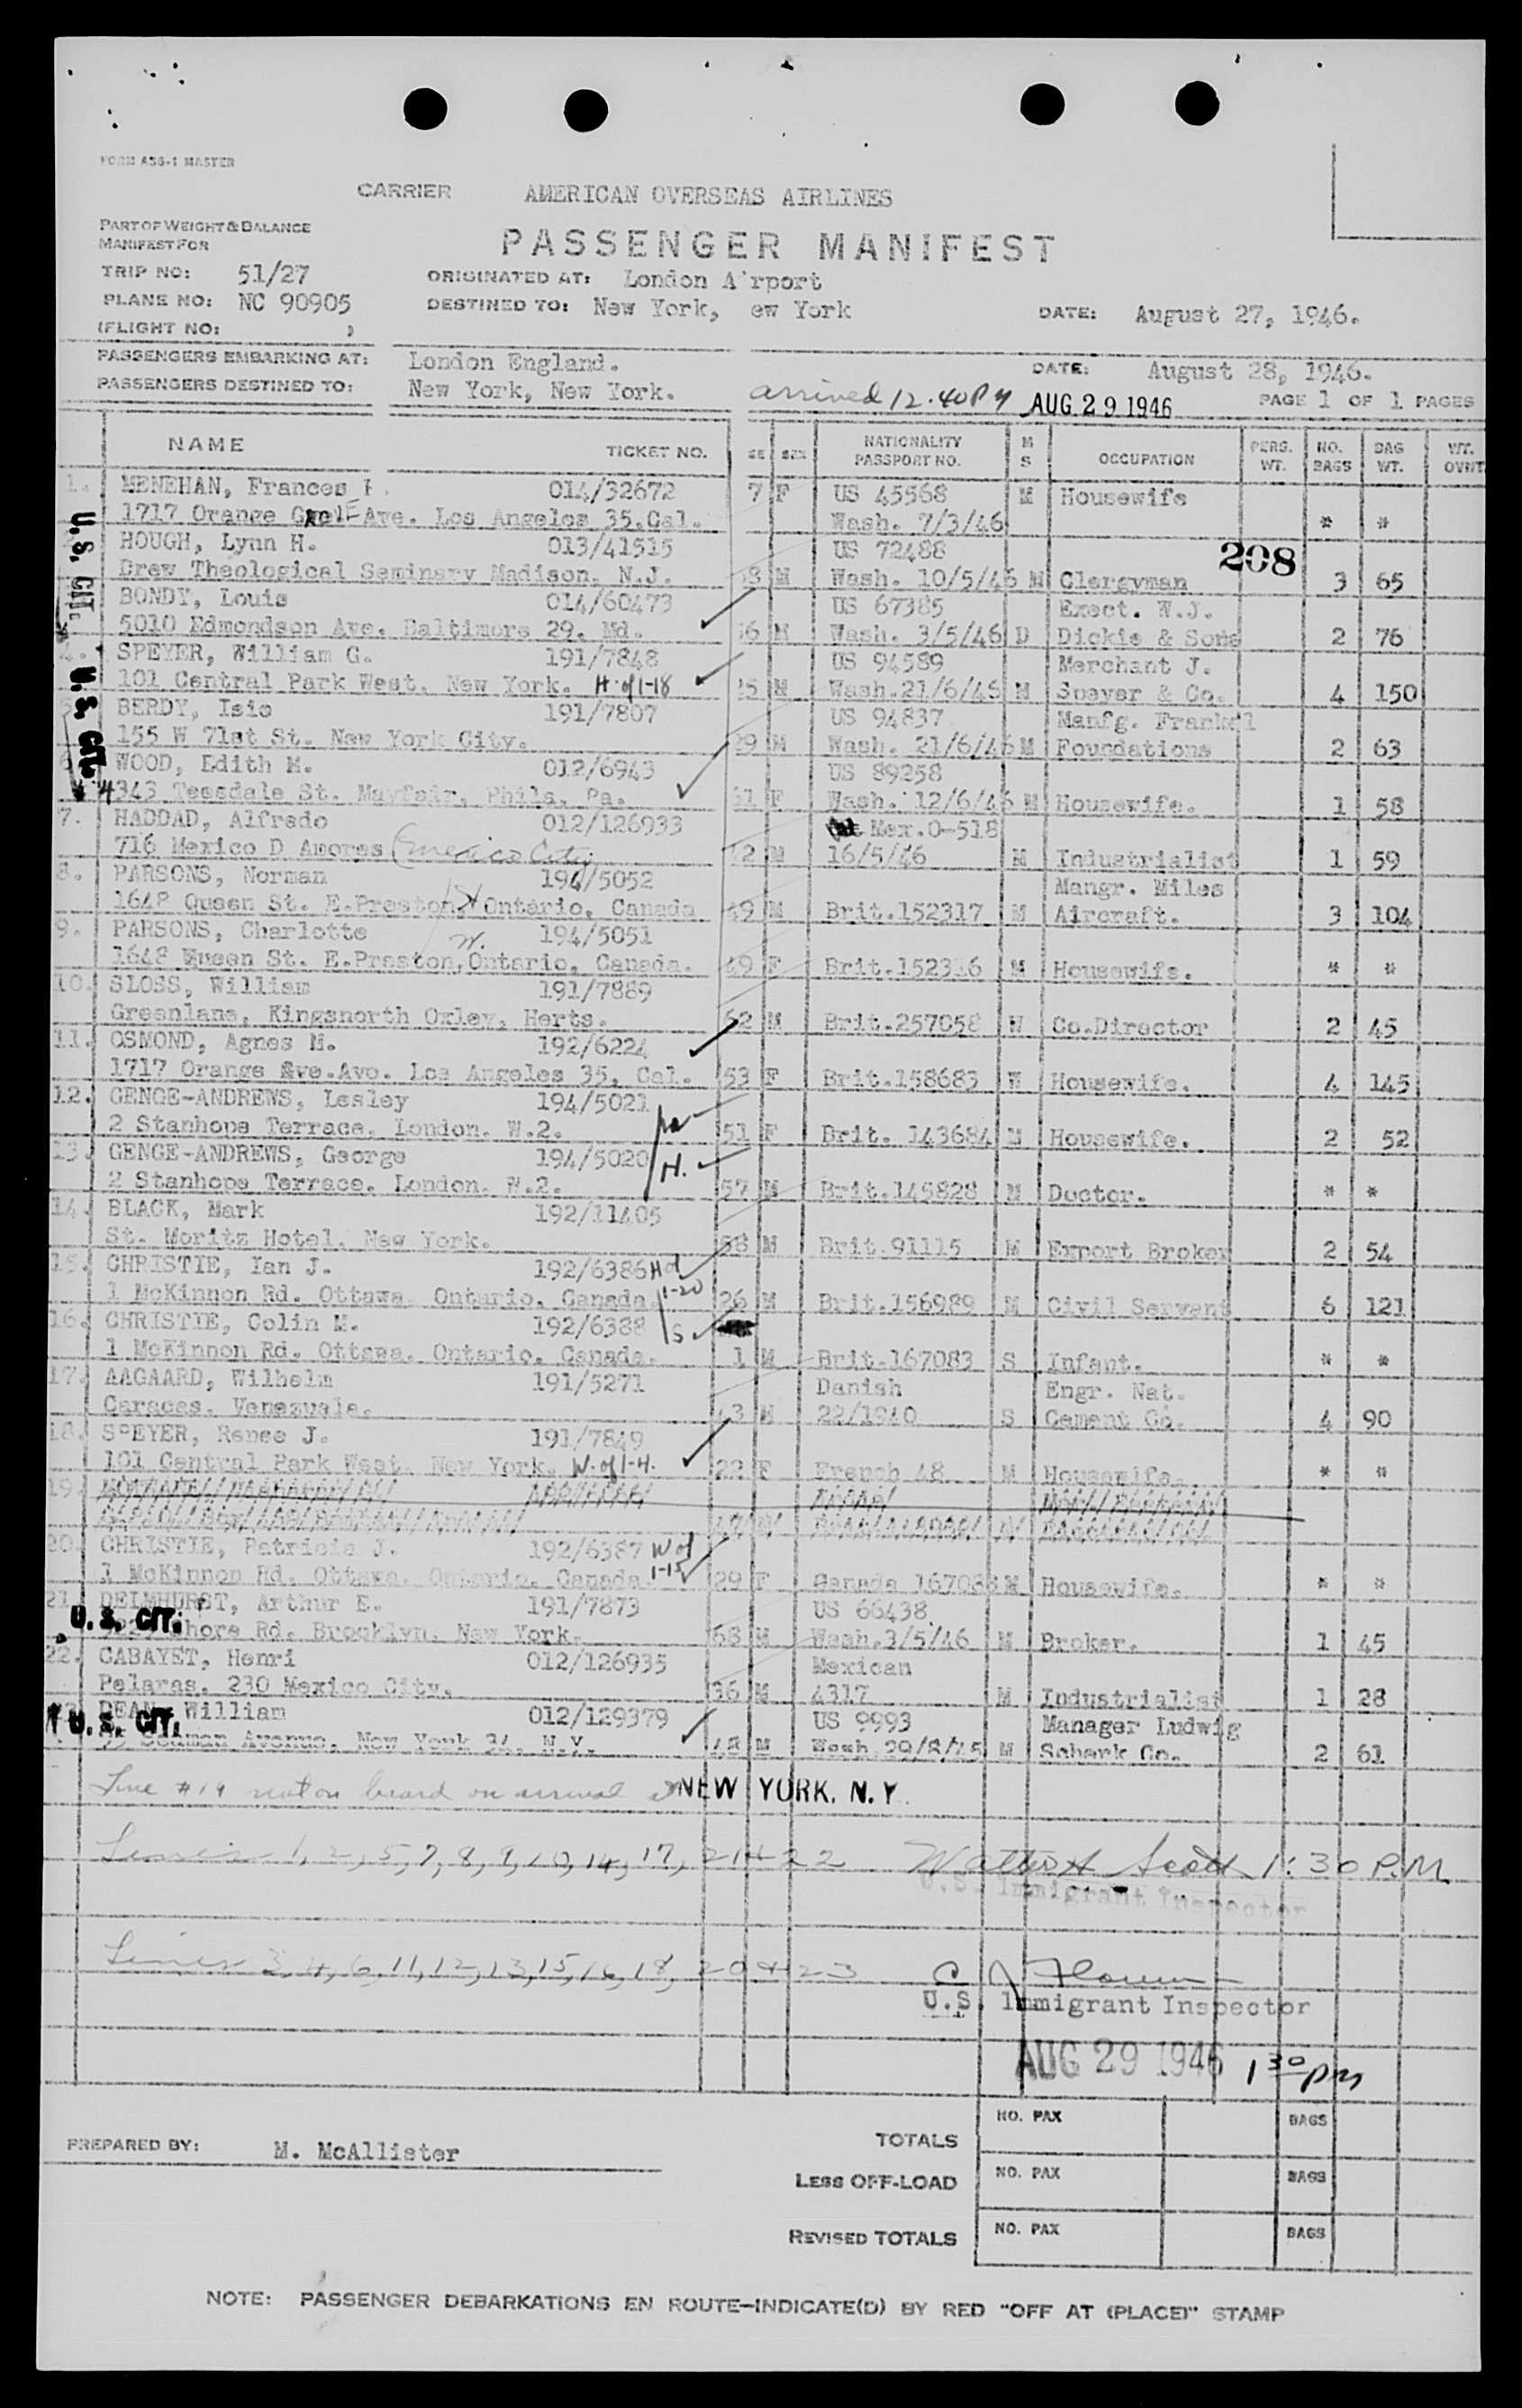 FORM ASG-1 MASTER
CARRIER AMERICAN OVERSEAS AIRLINES
PART OF WEIGHT & BALANCE
MANIFEST FOR
PASSENGER MANIFEST
TRIP NO: 51/27 ORIGINATED AT: London A'rport
PLANE NO: NC 90905 DESTINED TO: New York, ew York DATE: August 27, 1946.
(FLIGHT NO: )
PASSENGERS EMBARKING AT: London England. DATE: August 28, 1946.
PASSENGERS DESTINED TO: New York, New York. arrived 12.40 PM AUG 29 1946 PAGE 1 OF 1 PAGES
NAME TICKET NO. GE SEX NATIONALITY PASSPORT NO. M S OCCUPATION PERS. WT. NO. BAGS BAG WT. WT. OVNT
1. MENEHAN, Frances 014/32672 7 F US 45568 M Housewife
1717 Orange Ave. Los Angeles 35.Cal. Wash. 7/3/46 * *
U.S. CIT.
HOUGH, Lynn H. 013/41515 US 72488 208
Drew Theological Seminary Madison. N.J. 8 M Wash. 10/5/46 M Clergyman 3 65
BONDY, Louis 014/60473 US 67385 Exect. W.J.
5010 Edmondson Ave. Baltimore 29. Md. 6 M Wash. 3/5/46 D Dickie & Sons 2 76
4. SPEYER, William G. 191/7848 US 94589 Merchant J.
101 Central Park West. New York. H of 1-18 5 M Wash.21/6/46 M Speyer & Co. 4 150
U.S. CIT.
BERDY, Isio 191/7807 US 94837 Manfg. Frankel
155 W 71st St. New York City. 29 M Wash. 21/6/46 M Foundations 2 63
6 WOOD, Edith M. 012/6943 US 89258
4343 Teesdale St. Mayfair, Phila, Pa. 51 F Wash. 12/6/46 M Housewife. 1 58
7. HADDAD, Alfredo 012/126933 Mex.O-518
716 Mexico D Amores (Mexico City 2 M 16/5/46 M Industrialist 1 59
8. PARSONS, Norman 194/5052 Mangr. Miles
1648 Queen St. E.Preston. H Ontario, Canada 49 M Brit.152317 M Aircraft. 3 104
9. PARSONS, Charlotte W. 194/5051
1648 Queen St. E.Preston, Ontario, Canada. 49 F Brit.152316 M Housewife. * *
10. SLOSS, William 191/7889
Greenlane, Kingsnorth Oxley, Herts. 62 M Brit.257058 W Co.Director 2 45
11. OSMOND, Agnes M. 192/6224
1717 Orange Ave. Los Angeles 35, Cal. 53 F Brit.158683 W Housewife. 4 145
12. GENGE-ANDREWS, Lesley 194/5021
2 Stanhope Terrace, London. W.2. 51 F Brit. 143684 M Housewife. 2 52
13. GENGE-ANDREWS, George 194/5020 H.
2 Stanhope Terrace, London. W.2. 57 M Brit.145828 M Doctor. * *
14. BLACK, Mark 192/11405
St. Moritz Hotel, New York. 58 M Brit.91115 M Export Broker 2 54
15. CHRISTIE, Ian J. 192/6386 H of 1-20
1 McKinnon Rd. Ottawa. Ontario, Canada. 26 M Brit.156989 M Civil Servant 6 121
16. CHRISTIE, Colin M. 192/6388 S
1 McKinnon Rd. Ottawa. Ontario, Canada. 1 M Brit.167083 S Infant. * *
17. AAGAARD, Wilhelm 191/5271 Danish Engr. Nat.
Caracas. Venezuala. 43 M 22/1940 S Cement Co. 4 90
18. SPEYER, Renee J. 191/7849
101 Central Park West. New York. W. of 1-4. 22 F French 48 M Housewife. * *
19.
20. CHRISTIE, Patricia J. 192/6387 W of 1-15
1 McKinnon Rd. Ottawa. Ontario. Canada. 29 F Canada M Housewife. * *
21. DELMHURST, Arthur E. 191/7873 US 66438
U.S. CIT.
Shore Rd. Brooklyn. New York. 68 M Wash.3/5/46 M Broker. 1 45
22. CABAYET, Henri 012/126935 Mexican
Pelaras. 230 Mexico City. 36 M 4317 M Industrialist 1 28
DEAN, William 012/129379 US 9993 Manager Ludwig
U.S. CIT.
Avenue. New York 34. N.Y. 48 M Wash 29/8/45 M Schark Co. 2 61
Line #19 not on board on arrival at NEW YORK, N.Y.
Lines 1, 2, 5, 7, 8, 9, 10, 14, 17, 21 & 22 Walter A Scott 1:30 P.M.
U.S. Immigrant Inspector
Lines 3, 4, 6, 11, 12, 13, 15, 16, 18, 20 & 23
U.S. Immigrant Inspector
AUG 29 1946 1 30 PM
NO. PAX BAGS
PREPARED BY: M. McAllister TOTALS
LESS OFF-LOAD NO. PAX BAGS
REVISED TOTALS NO. PAX BAGS
NOTE: PASSENGER DEBARKATIONS EN ROUTE—INDICATE(D) BY RED "OFF AT (PLACE)" STAMP